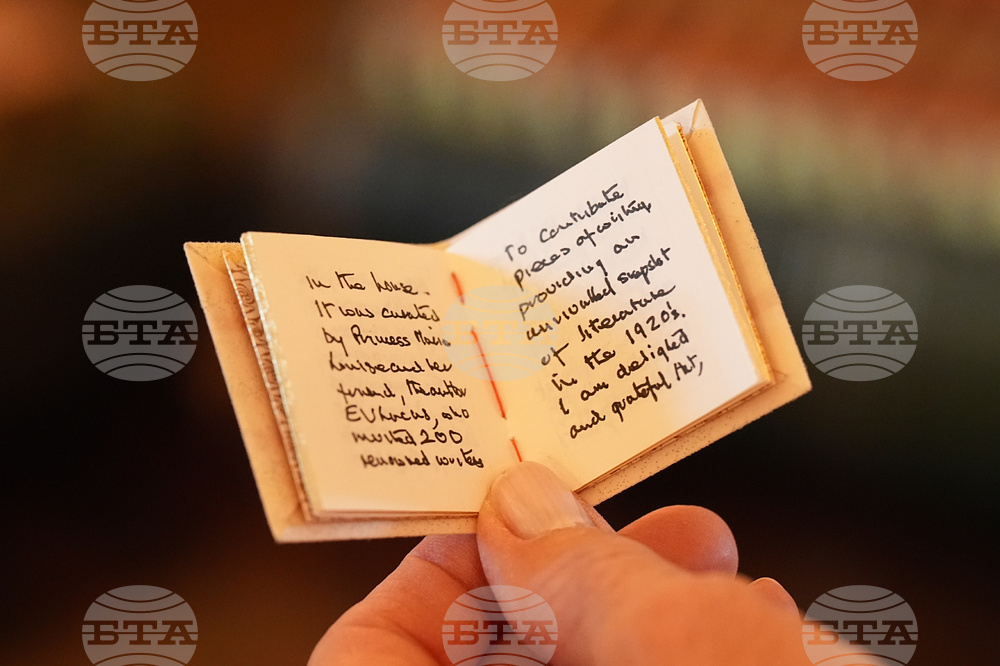 In the house.
It was curated
by Princess Marie
Louise and her
friend, the author
EV Lucas, who
invited 200
renowned writers
To contribute
pieces of writing,
providing an
unrivalled snapshot
of literature
in the 1920s.
I am delighted
and grateful that,
БТА
БТА
БТА
БТА
БТА
БТА
БТА
БТА